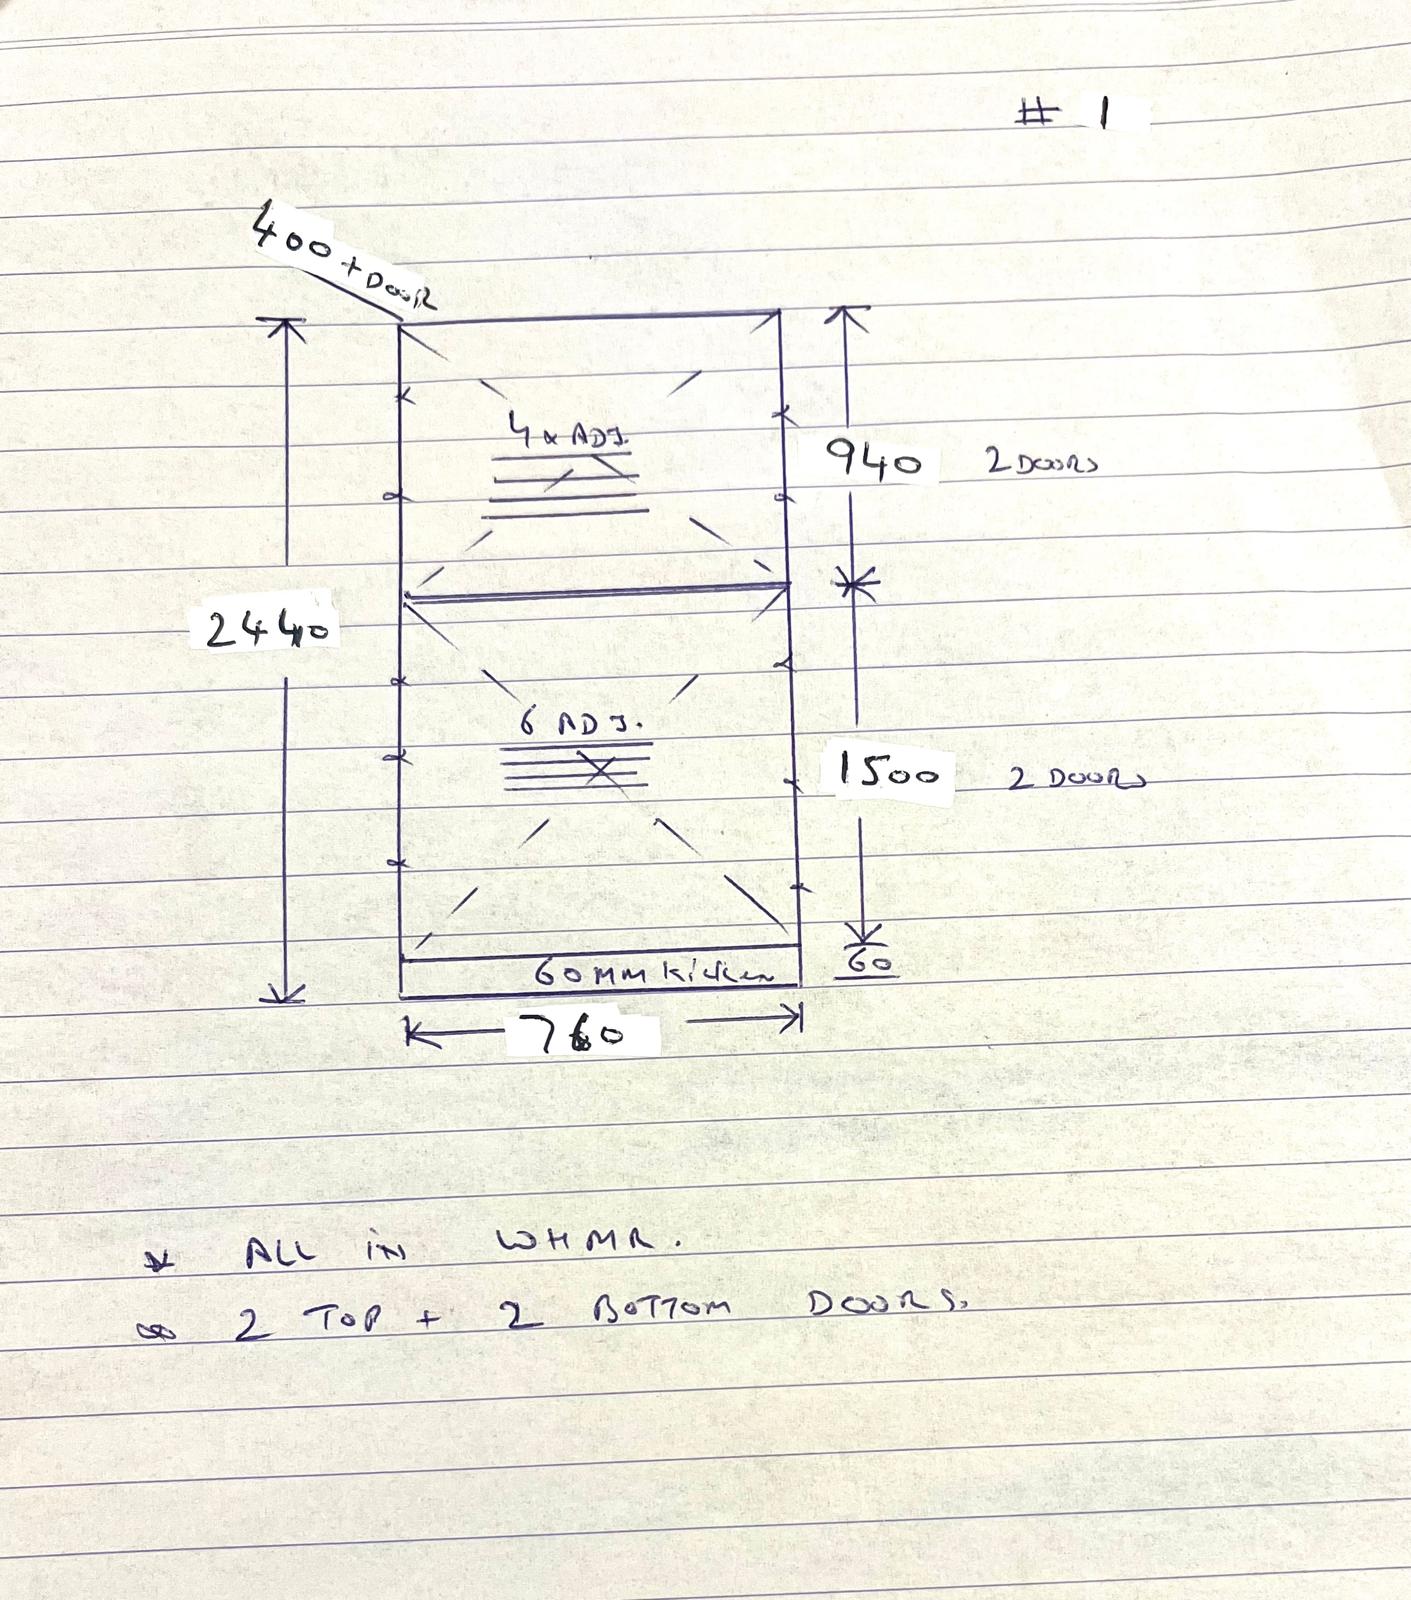 # 1
400 + DOOR
4 x ADJ.
940 2 DOORS
2440
6 ADJ.
1500 2 DOORS
60MM Kicker
60
760
ALL iN WHMR.
2 TOP + 2 BOTTOM DOORS.